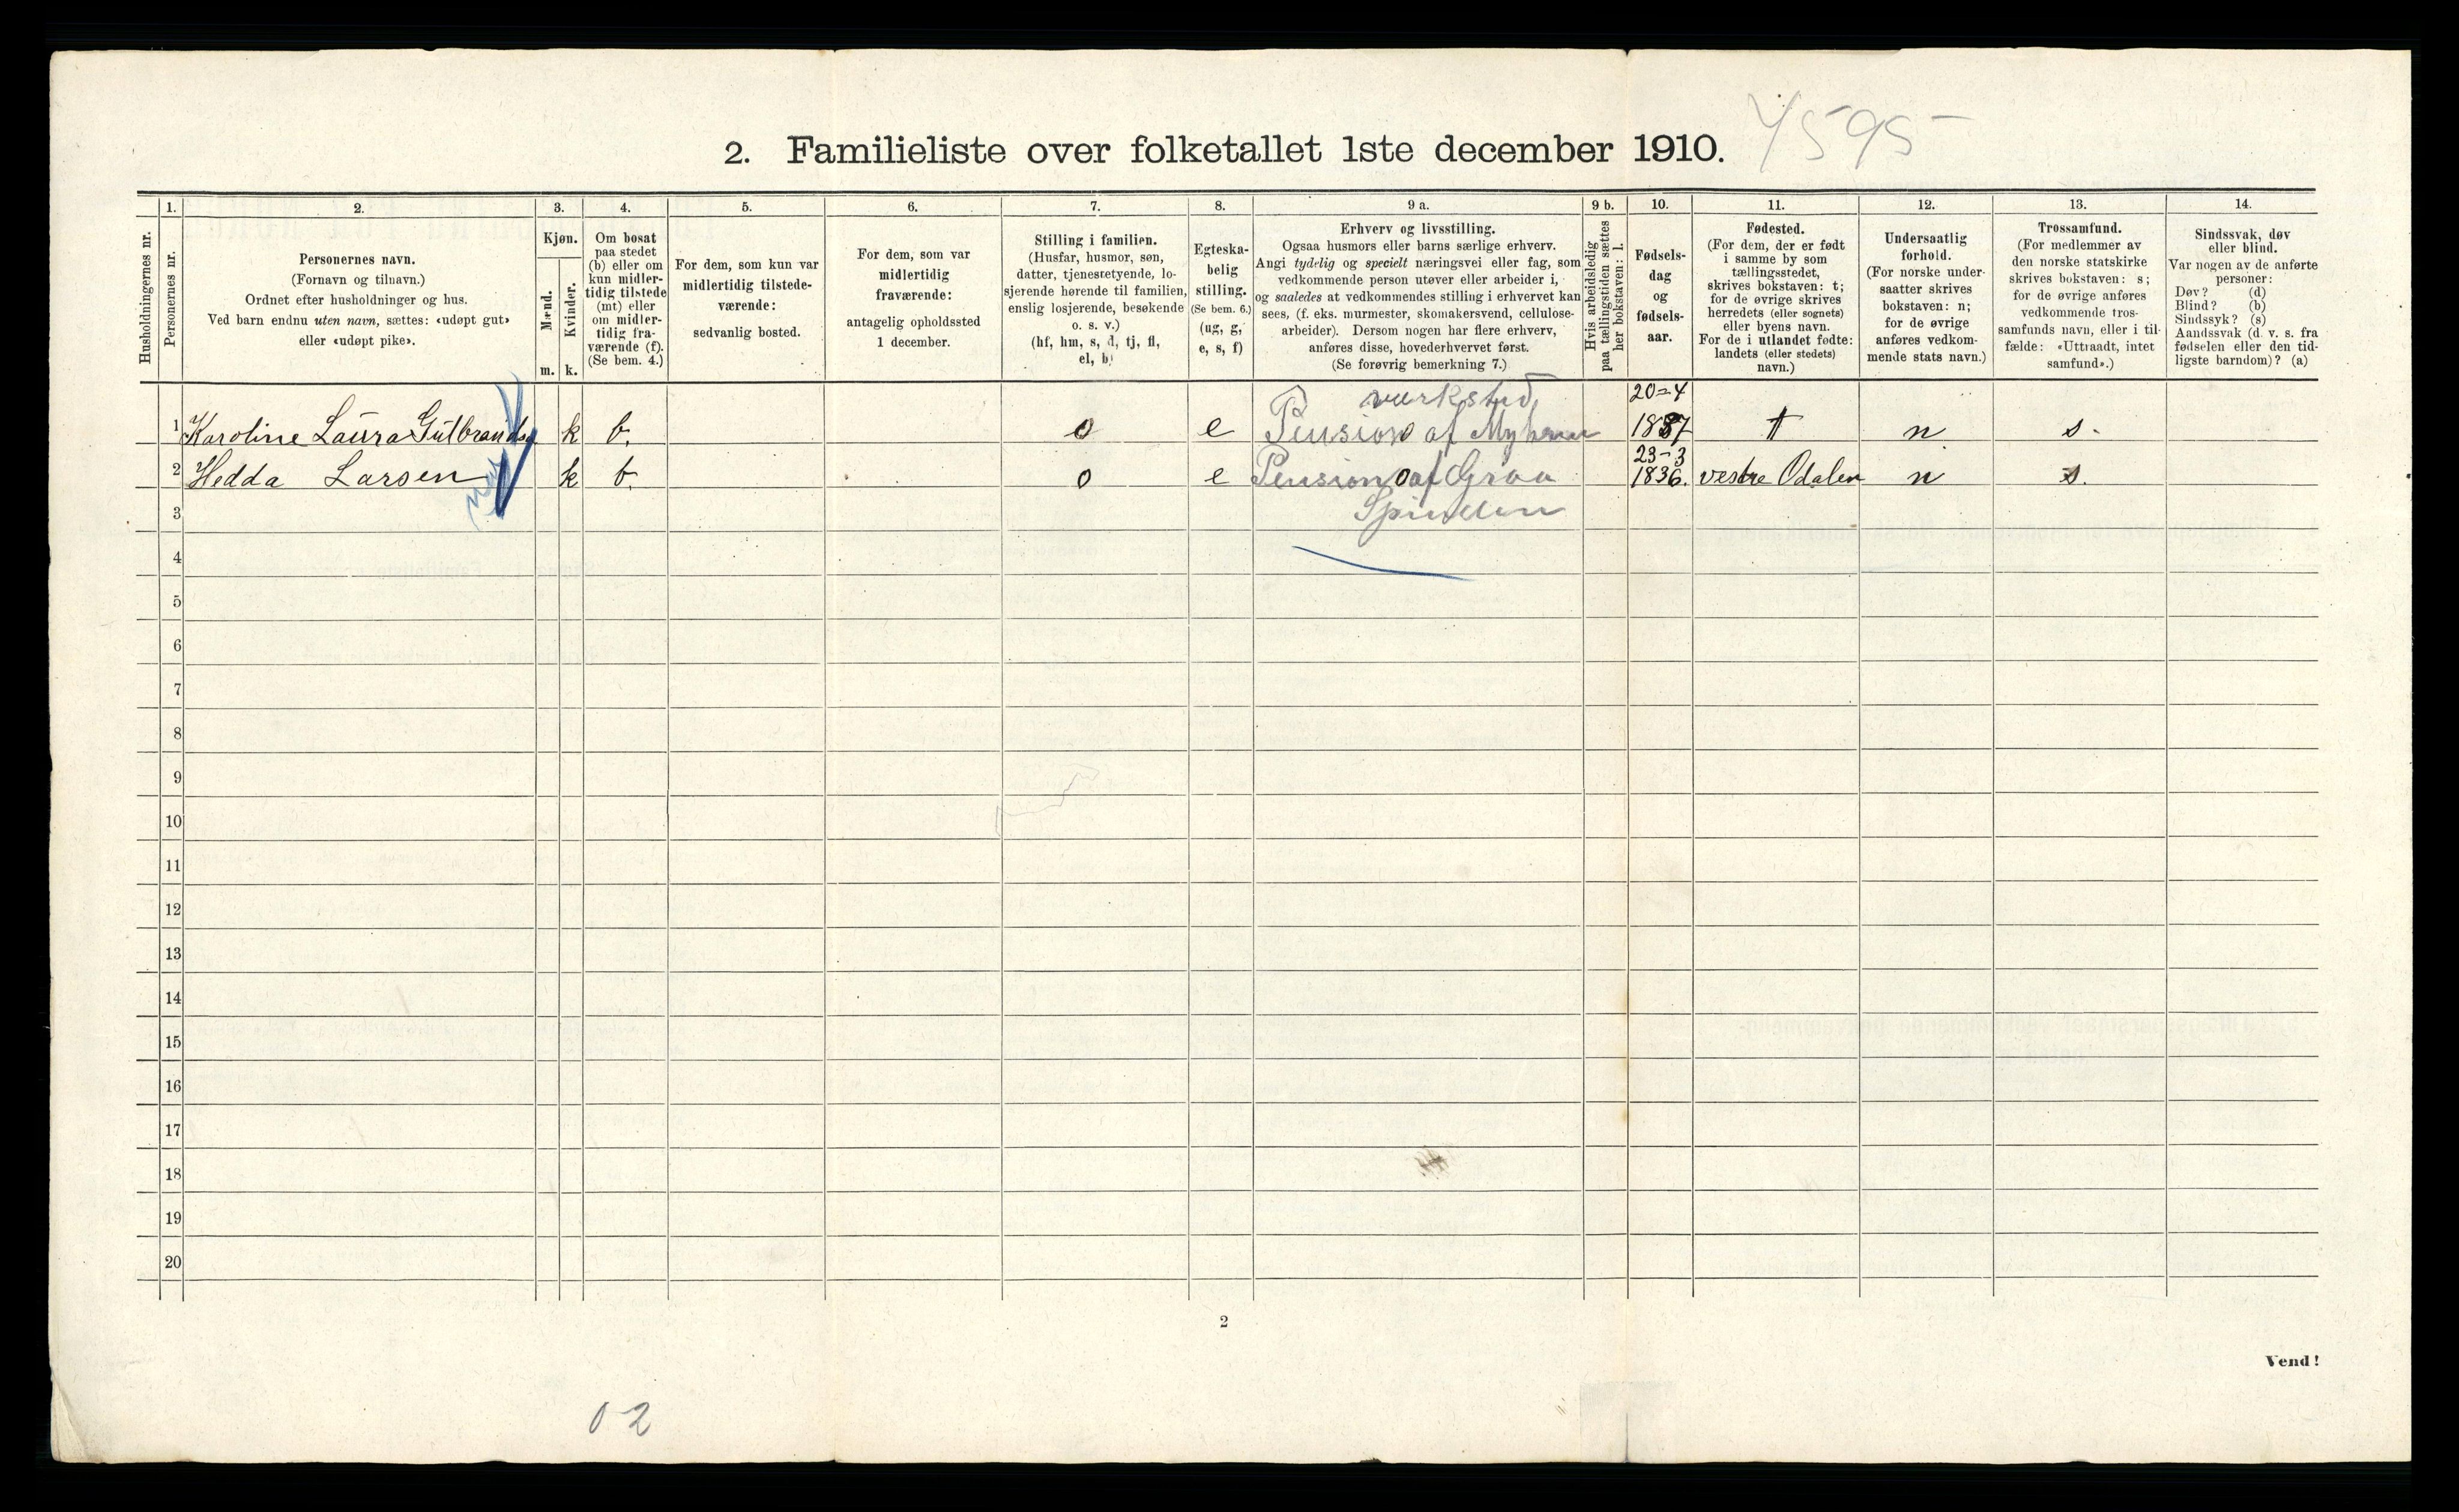 4595
2. Familieliste over folketallet 1ste december 1910.
Husholdningernes nr.
1.
Personernes nr.
2.
Personernes navn.
(Fornavn og tilnavn.)
Ordnet efter husholdninger og hus.
Ved barn endnu uten navn, sættes: «udøpt gut»
eller «udøpt pike».
3.
Kjøn.
Mænd.
Kvinder.
m. k.
4.
Om bosat
paa stedet
(b) eller om
kun midler-
tidig tilstede
(mt) eller
om midler-
tidig fra-
værende (f).
(Se bem. 4.)
5.
For dem, som kun var
midlertidig tilstede-
værende:
sedvanlig bosted.
6.
For dem, som var
midlertidig
fraværende:
antagelig opholdssted
1 december.
7.
Stilling i familien.
(Husfar, husmor, søn,
datter, tjenestetyende, lo-
sjerende hørende til familien,
enslig losjerende, besøkende
o. s. v.)
(hf, hm, s, d, tj, fl,
el, b)
8.
Egteska-
belig
stilling.
(Se bem. 6.)
(ug, g,
e, s, f)
9 a.
Erhverv og livsstilling.
Ogsaa husmors eller barns særlige erhverv.
Angi tydelig og specielt næringsvei eller fag, som
vedkommende person utøver eller arbeider i,
og saaledes at vedkommendes stilling i erhvervet kan
sees, (f. eks. murmester, skomakersvend, cellulose-
arbeider). Dersom nogen har flere erhverv,
anføres disse, hovederhvervet først.
(Se forøvrig bemerkning 7.)
9 b.
Hvis arbeidsledig
paa tællingstiden sættes
her bokstaven: l.
10.
Fødsels-
dag
og
fødsels-
aar.
11.
Fødested.
(For dem, der er født
i samme by som
tællingsstedet,
skrives bokstaven: t;
for de øvrige skrives
herredets (eller sognets)
eller byens navn.
For de i utlandet fødte:
landets (eller stedets)
navn.)
12.
Undersaatlig
forhold.
(For norske under-
saatter skrives
bokstaven: n;
for de øvrige
anføres vedkom-
mende stats navn.)
13.
Trossamfund.
(For medlemmer av
den norske statskirke
skrives bokstaven: s;
for de øvrige anføres
vedkommende tros-
samfunds navn, eller i til-
fælde: «Uttraadt, intet
samfund».)
14.
Sindssvak, døv
eller blind.
Var nogen av de anførte
personer:
Døv? (d)
Blind? (b)
Sindssyk? (s)
Aandssvak (d. v. s. fra
fødselen eller den tid-
ligste barndom)? (a)
verksted 20=4
1 Karoline Laura Gulbrandsen k b. o e Pension af Myhrens 1837 t n s.
23-3
2 Hedda Larsen k b. o e Pension af Graa 1836. vestre Odalen n s.
3 Spinderi
4
5
6
7
8
9
10
11
12
13
14
15
16
17
18
19
20
2
Vend!
02